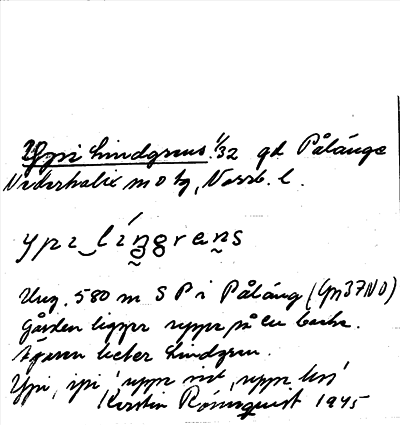 Ypi Lindgrens. 1/32 gd Pålänge
Nederkalix m o tg, Norrb. l.
ypi‿língrens
Ung. 580 m S P i Påläng (Gn37NO)
Gården ligger uppe på en backe.
Ägaren heter Lindgren.
Ypi, ipi 'uppe vid, uppe hos'
Kerstin Rönnquist 1945